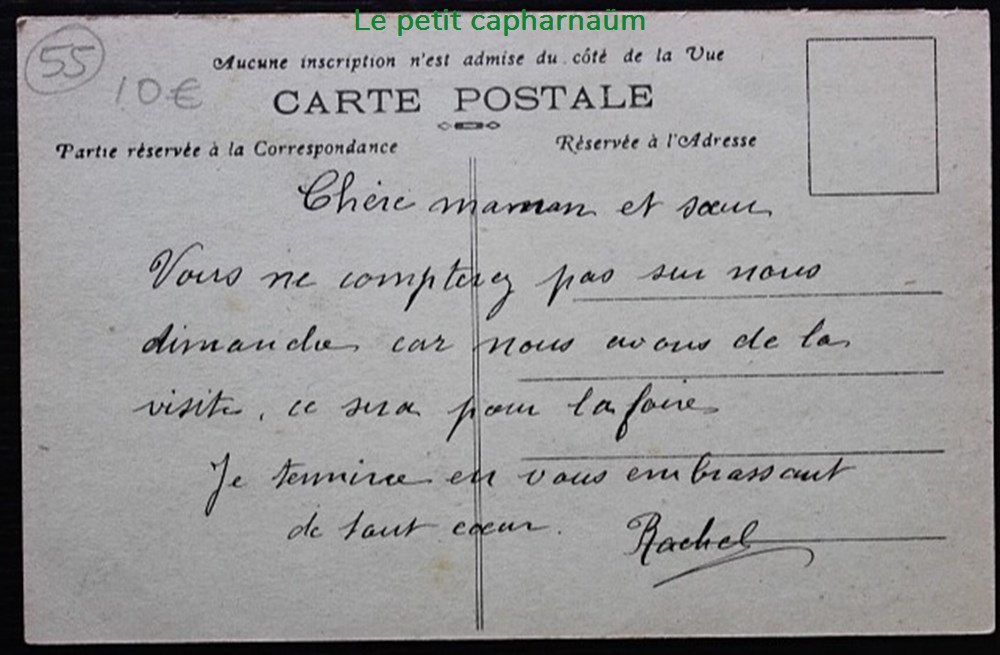 Le petit capharnaüm
55
10€
Aucune inscription n'est admise du côté de la Vue
CARTE POSTALE
Partie réservée à la Correspondance
Réservée à l'Adresse
Chère maman et sœur
Vous ne compterez pas sur nous
dimanche car nous avons de la
visite, ce sera pour la foire
Je termine en vous embrassant
de tout cœur. Rachel